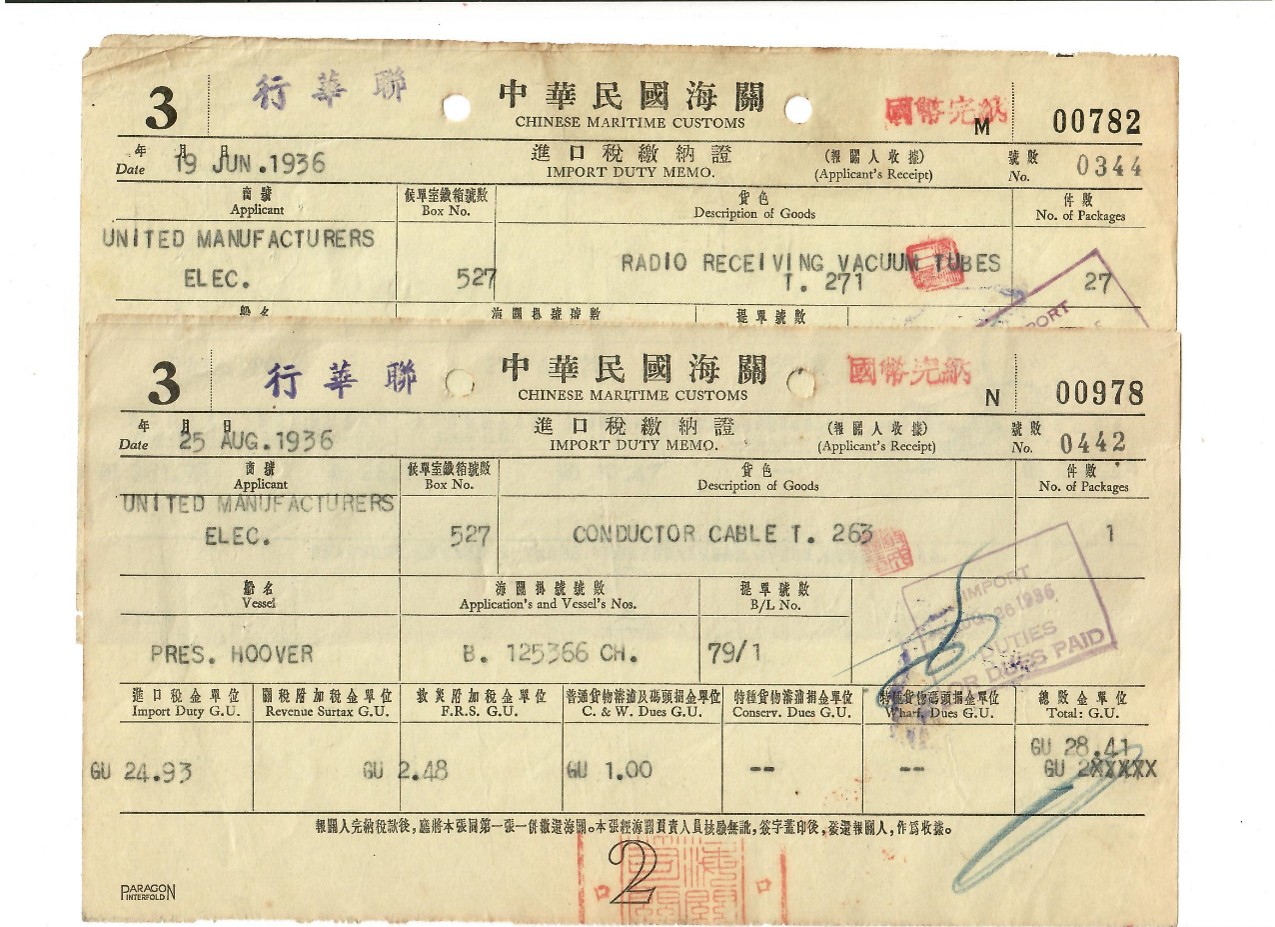 3 行華聯 中華民國海關 國幣完納 00782
CHINESE MARITIME CUSTOMS M
年 月 日 進口稅繳納證 (報關人收據) 號數
Date 19 JUN.1936 IMPORT DUTY MEMO. (Applicant's Receipt) No. 0344
商號 候單室鐵箱號數 貨色 件數
Applicant Box No. Description of Goods No. of Packages
UNITED MANUFACTURERS
RADIO RECEIVING VACUUM TUBES
ELEC. 527 T. 271 27
船名 海關掛號號數 提單號數
3 行華聯 中華民國海關 國幣完納 00978
CHINESE MARITIME CUSTOMS N
年 月 日 進口稅繳納證 (報關人收據) 號數
Date 25 AUG.1936 IMPORT DUTY MEMO. (Applicant's Receipt) No. 0442
商號 候單室鐵箱號數 貨色 件數
Applicant Box No. Description of Goods No. of Packages
UNITED MANUFACTURERS
ELEC. 527 CONDUCTOR CABLE T. 263 1
船名 海關掛號號數 提單號數
Vessel Application's and Vessel's Nos. B/L No.
IMPORT
26 1936
DUTIES
OR DUES PAID
PRES. HOOVER B. 125366 CH. 79/1
進口稅金單位 關稅附加稅金單位 救災附加稅金單位 普通貨物濬浦及碼頭捐金單位 特種貨物濬浦捐金單位 特種貨物碼頭捐金單位 總數金單位
Import Duty G.U. Revenue Surtax G.U. F.R.S. G.U. C. & W. Dues G.U. Conserv. Dues G.U. Wharf. Dues G.U. Total: G.U.
GU 28.41
GU 24.93 GU 2.48 GU 1.00 -- -- GU 2XXXXX
報關人完納稅款後,應將本張同第一張一併繳還海關。本張經海關負責人員核驗無訛,簽字蓋印後,發還報關人,作爲收據。
2
PARAGON
INTERFOLD